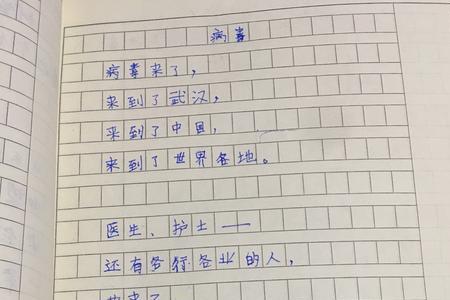 病毒
病毒来了，
来到了武汉，
来到了中国，
来到了世界各地。
医生、护士——
还有各行各业的人，
来了